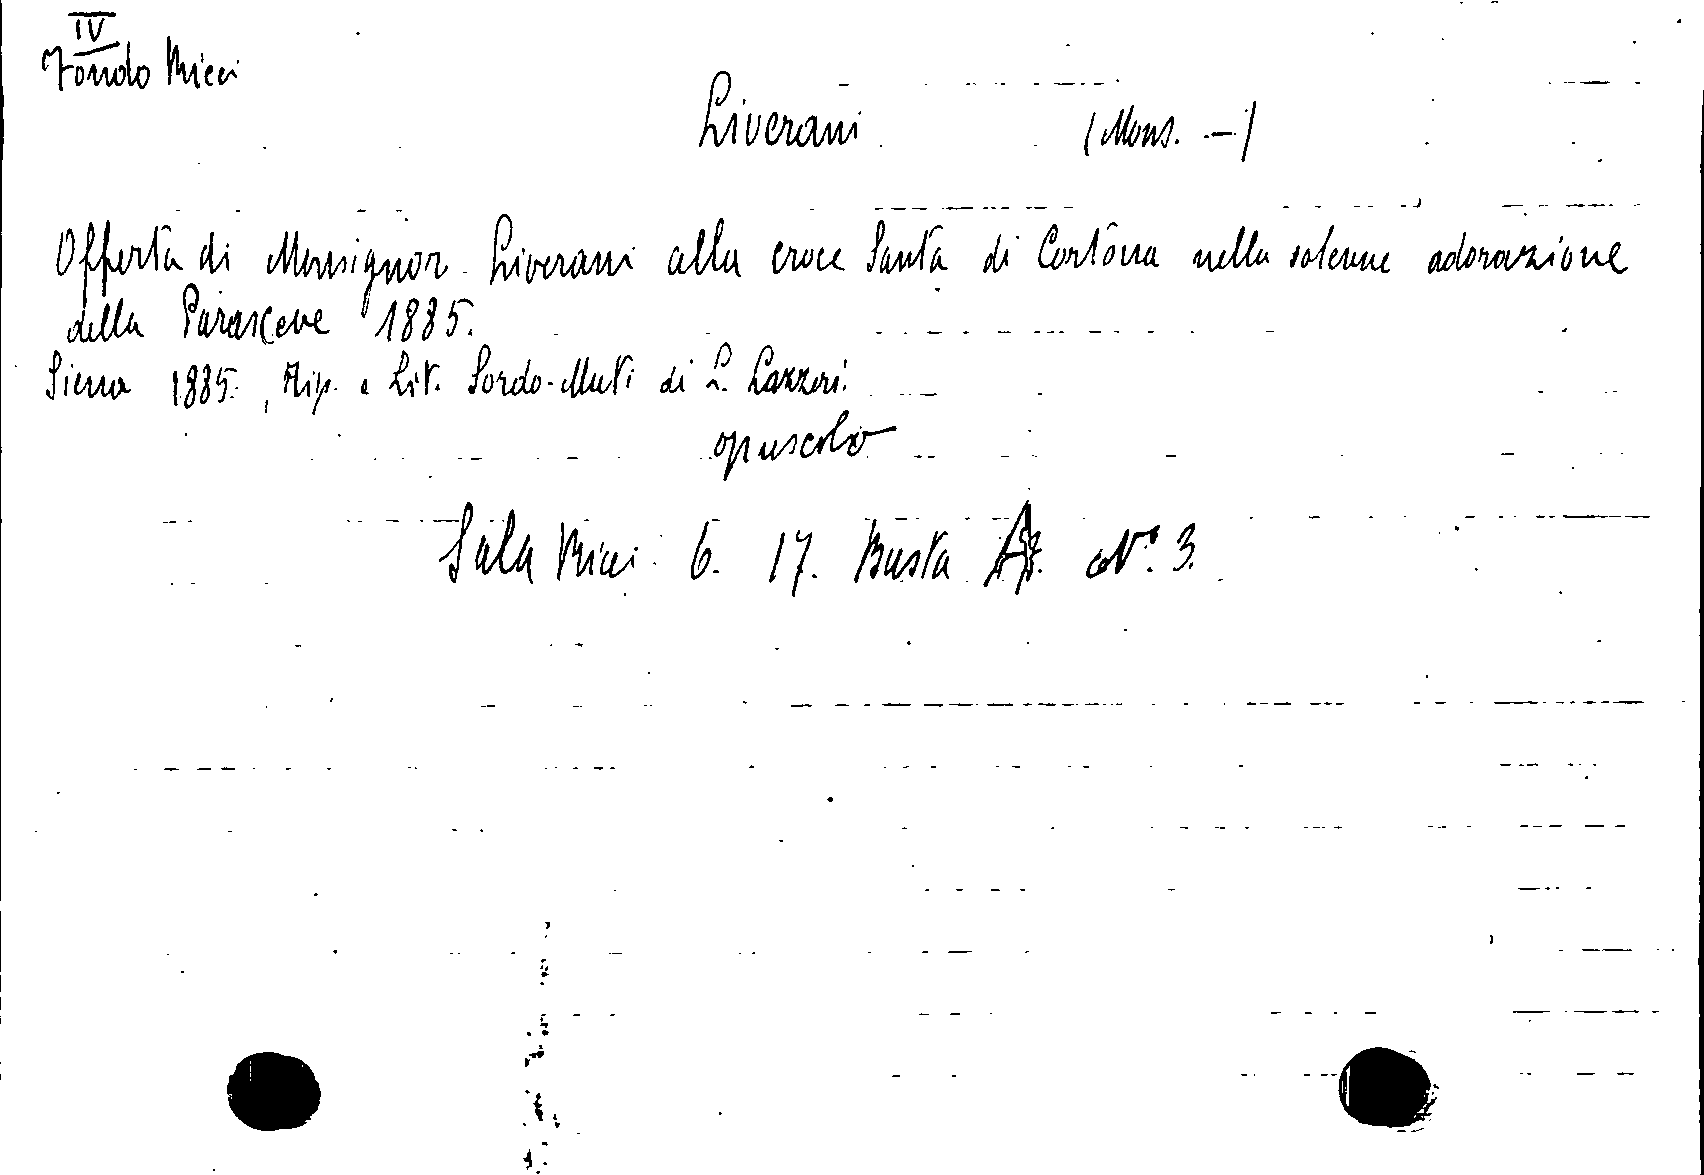 IV
Fondo Ricci
Liverani (Mons. —)
Offerta di Monsignor Liverani alla croce Santa di Cortona nella solenne adorazione
della Parasceve 1885.
Siena 1885., Tip. e Lit. Sordo-Muti di L. Lazzeri.
opuscolo
Sala Ricci 6. 17. Busta N° 3.